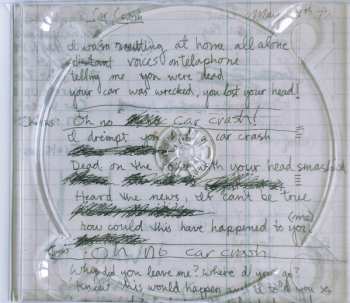 Car Crash
I was sitting at home all alone
distant voices on telephone
telling me you were dead
your car was wrecked, you lost your head!
Chorus: Oh no car crash!
I dreampt you in a car crash
Dead on the road with your head smashed
Heard the news, it cant be true
(me)
how could this have happened to you
Oh no car crash
Why did you leave me? Where did you go?
knew this would happen and told you so